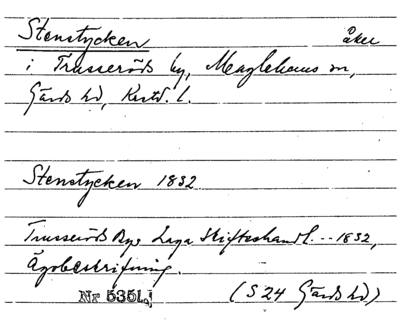 Stenstycken åker
i Trusseröds by, Maglehems sn,
Gärds hd, Krstd. l.
Stenstycken 1832
Trusseröds Bys Laga Skifteshandl. -- 1832,
Ägobeskrifning.
Nr 535L. (S 24 Gärds hd)